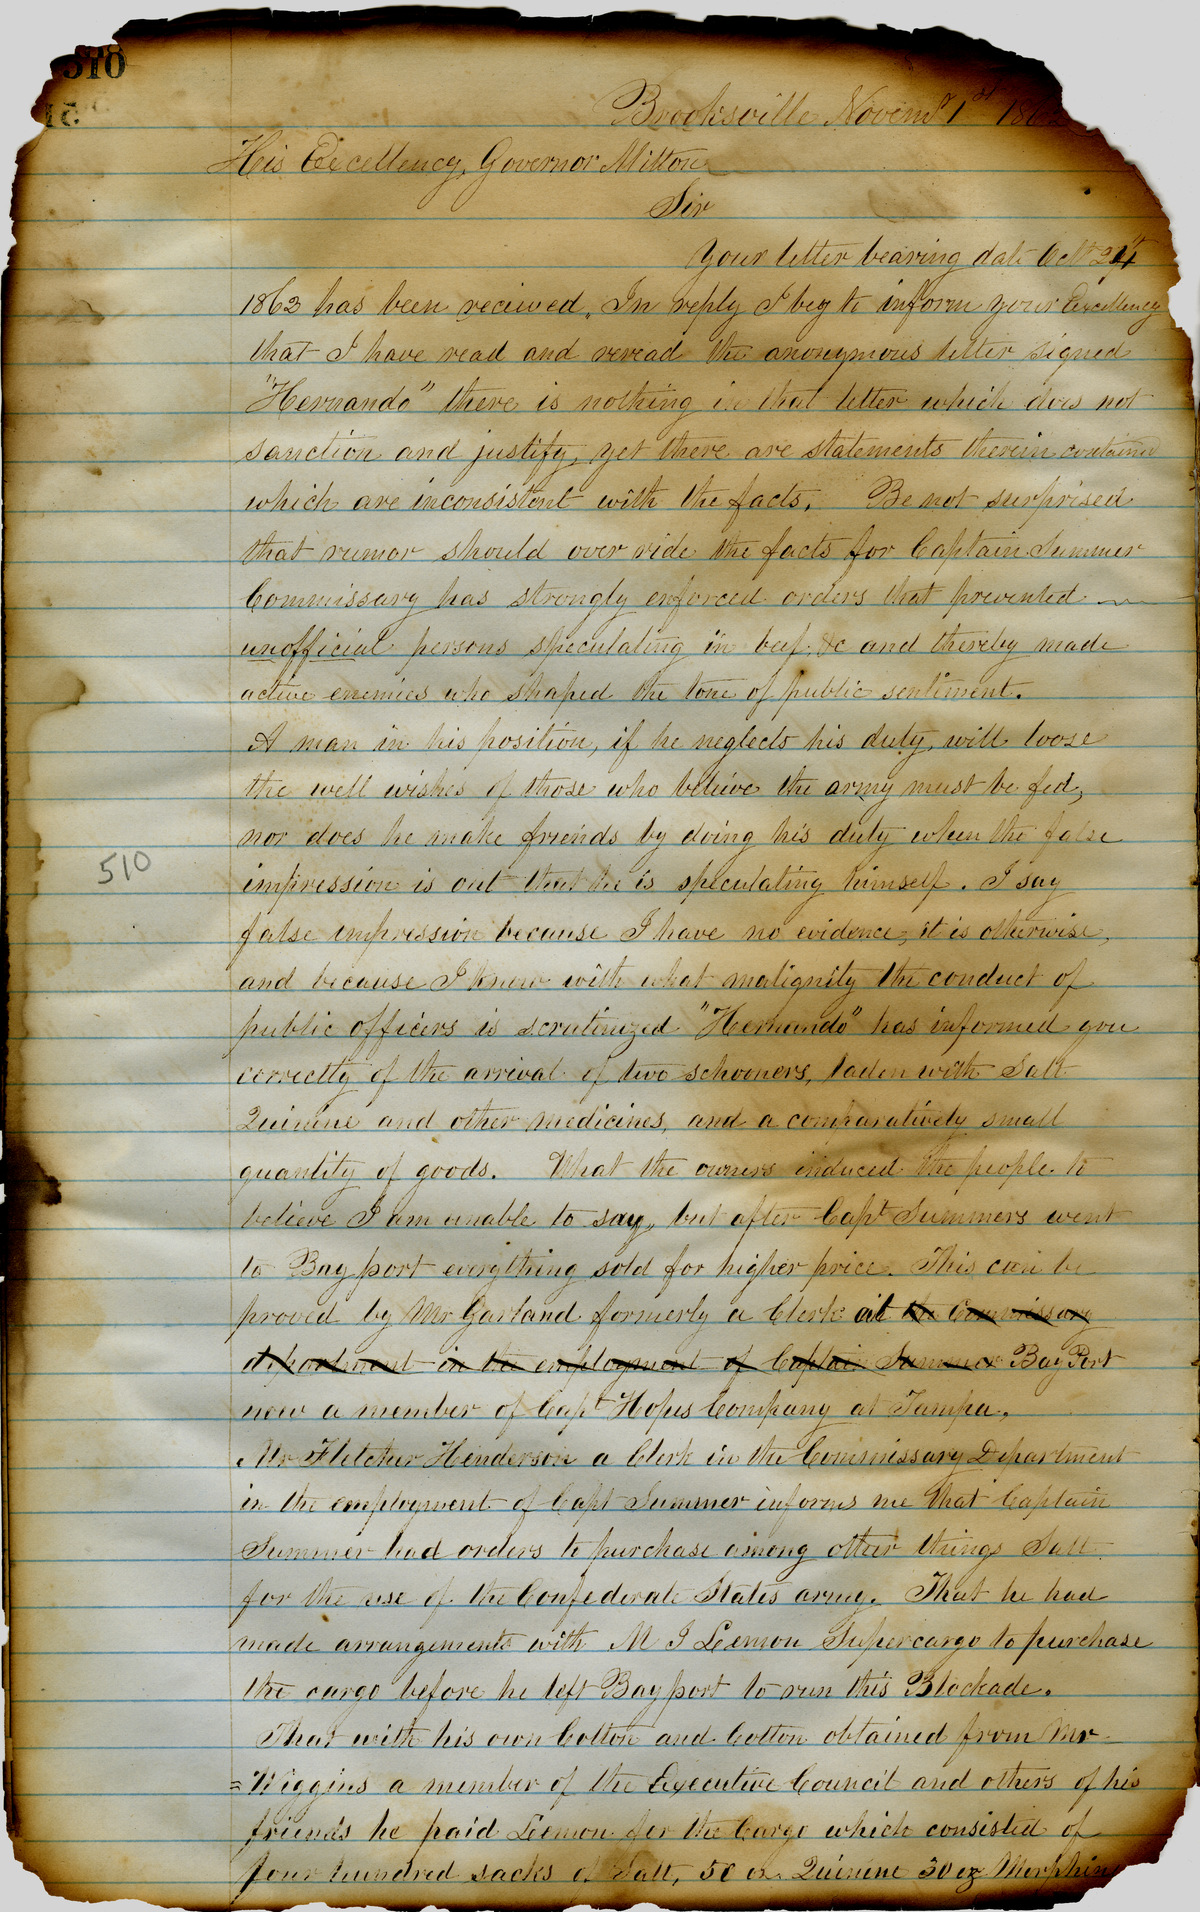 510
Brooksville Novemr 1st 186
His Excellency, Governor Milton
Sir
Your letter bearing date Oct 24th
1863 has been recieved. In reply I beg to inform your Excellency
that I have read and reread the anonymous letter signed
"Hernando" there is nothing in that letter which does not
sanction and justify, yet there are statements therein contained
which are inconsistent with the facts. Be not surprised
that rumor should over ride the facts for Captain Summer
Commissary has strongly enforced orders that prevented
unofficial persons speculating in beef &c and thereby made
active enemies who shaped the tone of public sentiment.
A man in his position, if he neglects his duty, will loose
the well wishes of those who believe the army must be fed,
nor does he make friends by doing his duty when the false
510
impression is out that he is speculating himself. I say
false impression because I have no evidence, it is otherwise,
and because I know with what malignity the conduct of
public officers is scrutinized "Hernando" has informed you
correctly of the arrival of two schooners, laden with Salt
Quinine and other medicines, and a comparatively small
quantity of goods. What the owners induced the people to
believe I am unable to say, but after Capt Summers went
to Bay port everything sold for higher price. This can be
proved by Mr Garland formerly a Clerk at the Commissary
department in the employment of Captain Summer Bay Port
now a member of Capt Hopes Company at Tampa.
Mr Fletcher Henderson a Clerk in the Commissary Department
in the employment of Capt Summer informs me that Captain
Summer had orders to purchase among other things Salt
for the use of the Confederate States army. That he had
made arrangements with M J Leemon Supercargo to purchase
the cargo before he left Bay port to run this Blockade.
That with his own Cotton and Cotton obtained from Mr
=Wiggins a member of the Executive Council and others of his
friends he paid Leemon for the Cargo which consisted of
four hundred sacks of Salt, 50 oz Quinine 30 oz Morphin